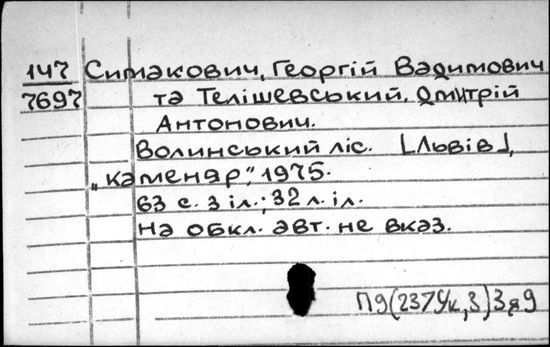 147 Симакович, Георгій Вадимович
7697 та Телішевський, Дмитрій
Антонович.
Волинський ліс. [Львів],
"Каменяр", 1975.
63 с. з іл.; 32 л. іл.
На обкл. авт. не вказ.
П9(237Ук,3)3я9